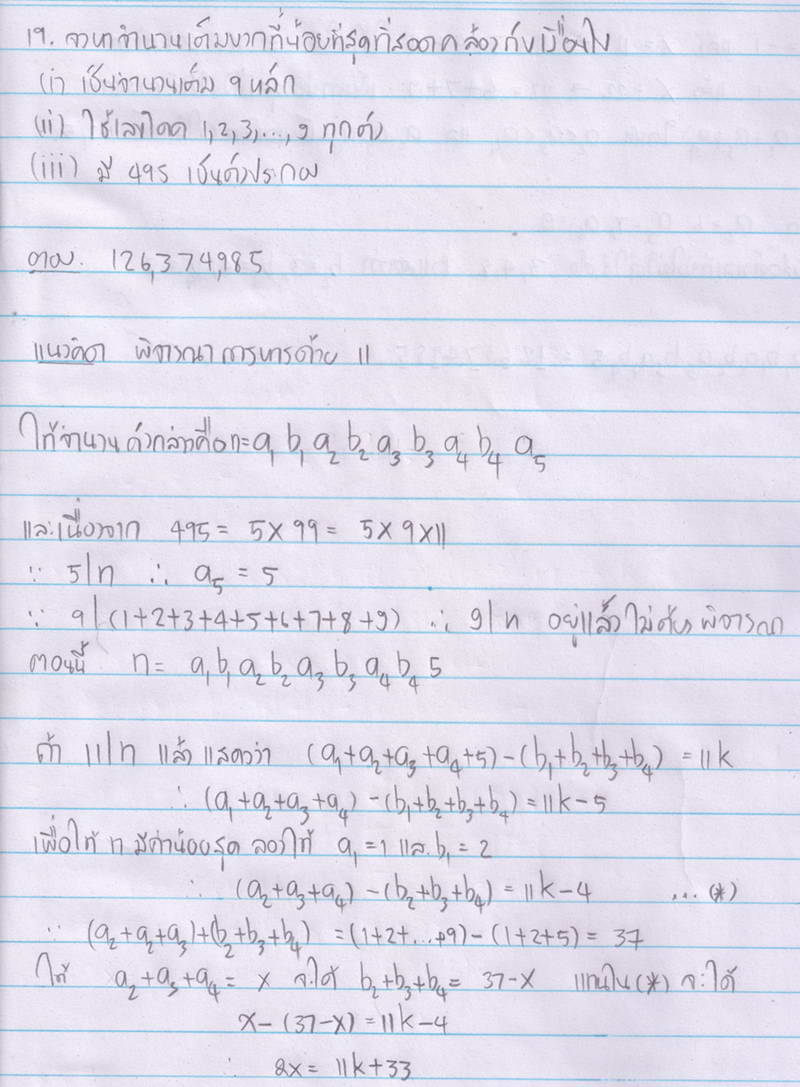 19. จงหาจำนวนเต็มบวกที่น้อยที่สุดที่สอดคล้องกับเงื่อนไข
(i) เป็นจำนวนเต็ม 9 หลัก
(ii) ใช้เลขโดด 1,2,3,...,9 ทุกตัว
(iii) มี 495 เป็นตัวประกอบ
ตอบ. 126,374,985
แนวคิด พิจารณาการหารด้วย 11
ให้จำนวนดังกล่าวคือ n = a₁ b₁ a₂ b₂ a₃ b₃ a₄ b₄ a₅
และเนื่องจาก 495 = 5 × 99 = 5 × 9 × 11
∵ 5|n ∴ a₅ = 5
∵ 9|(1+2+3+4+5+6+7+8+9) ∴ 9|n อยู่แล้วไม่ต้องพิจารณา
ตอนนี้ n = a₁b₁a₂b₂a₃b₃a₄b₄5
ถ้า 11|n แล้ว แสดงว่า (a₁+a₂+a₃+a₄+5)-(b₁+b₂+b₃+b₄) = 11k
∴ (a₁+a₂+a₃+a₄)-(b₁+b₂+b₃+b₄) = 11k-5
เพื่อให้ n มีค่าน้อยสุด ลองให้ a₁=1 และ b₁=2
∴ (a₂+a₃+a₄)-(b₂+b₃+b₄) = 11k-4 ...(*)
∵ (a₂+a₂+a₃)+(b₂+b₃+b₄) = (1+2+...+9)-(1+2+5) = 37
ให้ a₂+a₃+a₄ = x จะได้ b₂+b₃+b₄ = 37-x แทนใน (*) จะได้
x-(37-x) = 11k-4
∴ 2x = 11k+33